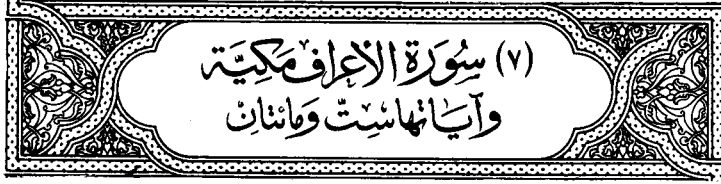 (٧) سُورَة الأعراف مَكِيَّة
وآيَاتهَا سِتّ وَمائتَان